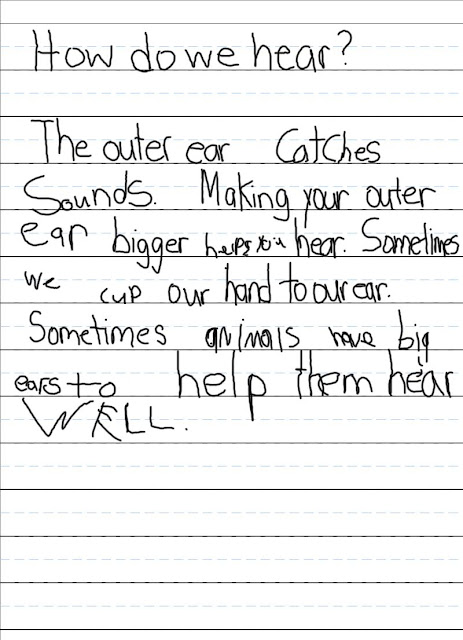 How do we hear?
The outer ear Catches
Sounds. Making your outer
ear bigger helps you hear. Sometimes
we cup our hand to our ear.
Sometimes animals have big
ears to help them hear
WELL.